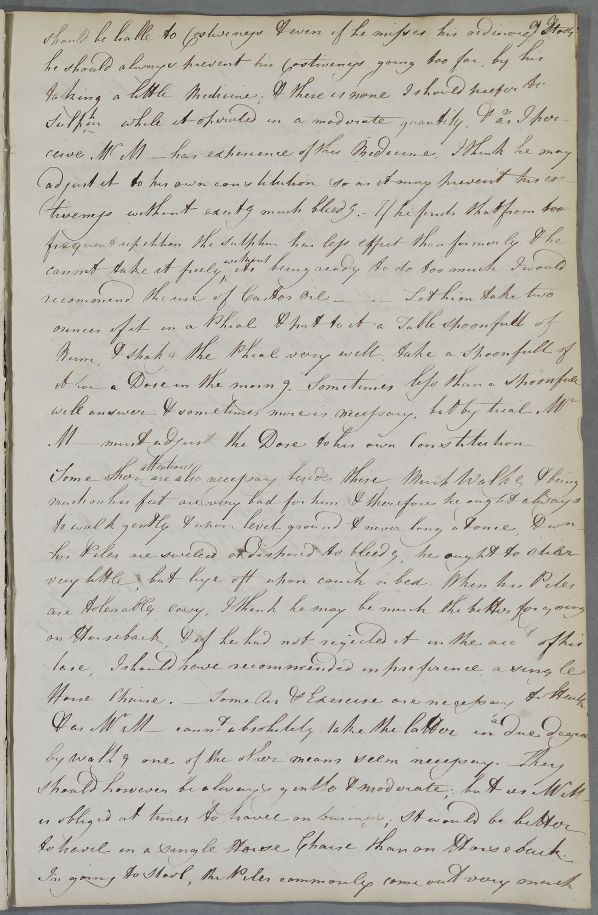 should be liable to Costiveness & even if he misses his ordinary Stool
he should always prevent his Costiveness going too far, by his
taking a little Medicine; & there is none I should prefer to
Sulphur while it operated in a moderate quantity, & as I per-
ceive Mr. M— has experience of this Medicine, I think he may
adjust it to his own constitution so as it may prevent his cos-
tiveness without excitg much bleedg.— If he finds that from too
frequent repetition the Sulphur has less effect than formerly & he
cannot take it freely without its being ready to do too much I would
recommend the use of Castor Oil — . — Let him take two
ounces of it in a Phial & put to it a Table Spoonfull of
Rum, & shake the Phial very well, take a spoonfull of
it for a Dose in the morng. Sometimes less than a Spoonfull
will answer & sometimes more is necessary, but by trial Mr
M— must adjust the Dose to his own Constitution
Some other attentions are also necessary beside these. Much Walkg & being
much on his feet are very bad for him & therefore he ought always
to walk gently & upon level ground & never long at once, & wn
his Piles are swelled or disposed to bleedg, he ought to
very little, but lye off upon couch or bed. When his Piles
are tolerably easy, I think he may be much the better for going
on Horseback, & if he had not rejected it in the acc of his
Case, I should have recommended in preference a single
Horse Chaise. — Some Air & Exercise are necessary to Health
& as Mr M— cannt absolutely take the latter in a due degree
by walkg one of the other means seem necessary. They
should however be always gentle & moderate; but as Mr M
is obliged at times to travel on business, it would be better
to travel in a single Horse Chaise than on Horseback.
In going to Stool, the Piles commonly come out very much